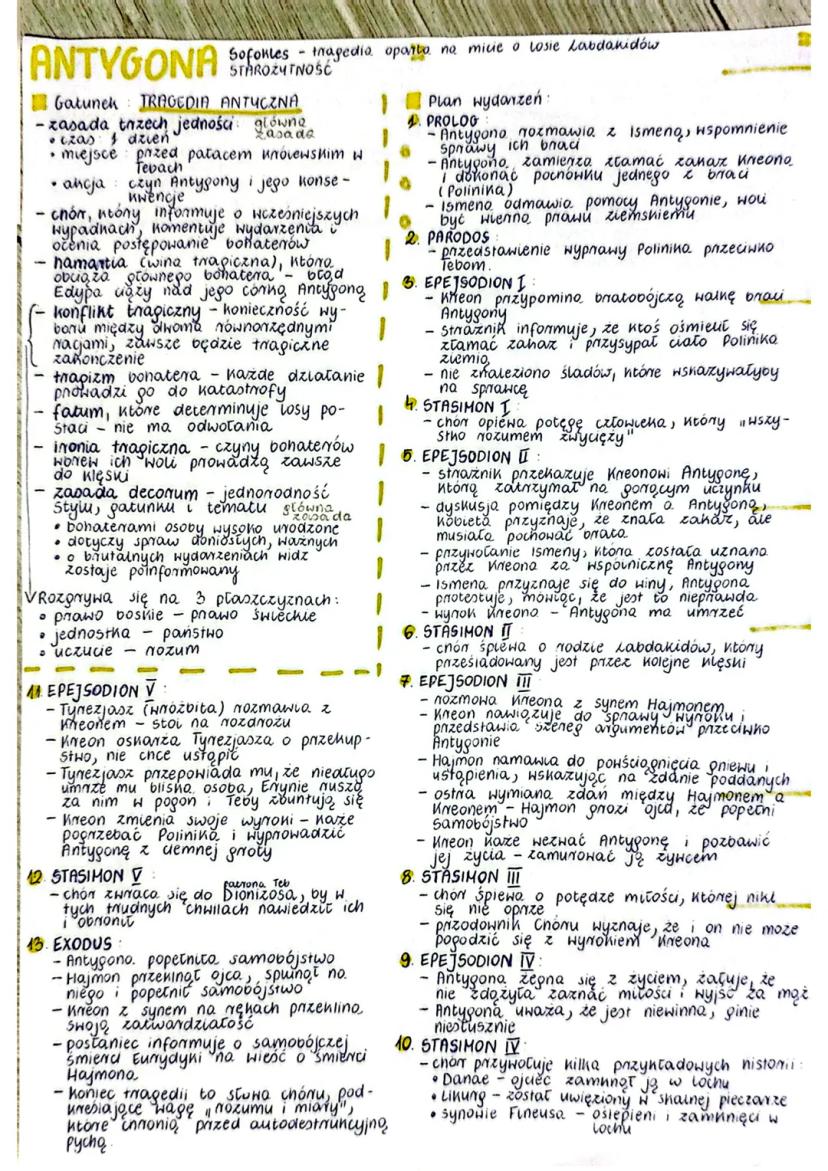 ANTYGONA Sofokles - tragedia oparta na micie o losie Labdakidów
STAROŻYTNOŚĆ
Gatunek: TRAGEDIA ANTYCZNA
- zasada trzech jedności: główna zasada
• czas: 1 dzień
• miejsce: przed pałacem królewskim w
Tebach
• akcja: czyn Antygony i jego konse-
kwencje
- chór, który informuje o wcześniejszych
wypadkach, komentuje wydarzenia i
ocenia postępowanie bohaterów
- hamartia (wina tragiczna), która
obciąża głównego bohatera - błąd
Edypa ciąży nad jego córką Antygoną
- konflikt tragiczny - konieczność wy-
boru między dwoma równorzędnymi
racjami, zawsze będzie tragiczne
zakończenie
- tragizm bohatera - każde działanie
prowadzi go do katastrofy
- fatum, które determinuje losy po-
staci - nie ma odwołania
- ironia tragiczna - czyny bohaterów
wbrew ich woli prowadzą zawsze
do klęski
- zasada decorum - jednorodność
stylu, gatunku i tematu główna zasada
• bohaterami osoby wysoko urodzone
• dotyczy spraw doniosłych, ważnych
• o brutalnych wydarzeniach widz
zostaje poinformowany
Rozgrywa się na 3 płaszczyznach:
• prawo boskie - prawo świeckie
• jednostka - państwo
• uczucie - rozum
Plan wydarzeń:
1. PROLOG:
- Antygona rozmawia z Ismeną, wspomnienie
sprawy ich braci
- Antygona zamierza złamać zakaz Kreona
i dokonać pochówku jednego z braci
(Polinika)
- Ismena odmawia pomocy Antygonie, woli
być wierna prawu ziemskiemu
2. PARODOS:
- przedstawienie wyprawy Polinika przeciwko
Tebom.
3. EPEJSODION I:
- Kreon przypomina bratobójczą walkę braci
Antygony
- strażnik informuje, że ktoś ośmielił się
złamać zakaz i przysypał ciało Polinika
ziemią
- nie znaleziono śladów, które wskazywałyby
na sprawcę
4. STASIMON I:
- chór opiewa potęgę człowieka, który "wszy-
stko rozumem zwycięży"
5. EPEJSODION II:
- strażnik przekazuje Kreonowi Antygonę,
którą zatrzymał na gorącym uczynku
- dyskusja pomiędzy Kreonem a Antygoną,
kobieta przyznaje, że znała zakaz, ale
musiała pochować brata
- przywołanie Ismeny, która została uznana
przez Kreona za wspólniczkę Antygony
- Ismena przyznaje się do winy, Antygona
protestuje, mówiąc, że jest to nieprawda
- wyrok Kreona - Antygona ma umrzeć
6. STASIMON II:
- chór śpiewa o rodzie Labdakidów, który
prześladowany jest przez kolejne klęski
7. EPEJSODION III:
- rozmowa Kreona z synem Hajmonem
- Kreon nawiązuje do sprawy wyroku i
przedstawia szereg argumentów przeciwko
Antygonie
- Hajmon namawia do powściągnięcia gniewu i
ustąpienia, wskazując na zdanie poddanych
- ostra wymiana zdań między Hajmonem a
Kreonem - Hajmon grozi ojcu, że popełni
samobójstwo
- Kreon każe wezwać Antygonę i pozbawić
jej życia - zamurować ją żywcem
8. STASIMON III:
- chór śpiewa o potędze miłości, której nikt
się nie oprze
- przodownik Chóru wyznaje, że i on nie może
pogodzić się z wyrokiem Kreona
9. EPEJSODION IV:
- Antygona żegna się z życiem, żałuje, że
nie zdążyła zaznać miłości i wyjść za mąż
- Antygona uważa, że jest niewinna, ginie
niesłusznie
10. STASIMON IV:
- chór przywołuje kilka przykładowych historii:
• Danae - ojciec zamknął ją w lochu
• Likurg - został uwięziony w skalnej pieczarze
• synowie Fineusa - oślepieni i zamknięci w
lochu
11. EPEJSODION V:
- Tyrezjasz (wróżbita) rozmawia z
Kreonem - stoi na rozdrożu
- Kreon oskarża Tyrezjasza o przekup-
stwo, nie chce ustąpić
- Tyrezjasz przepowiada mu, że niedługo
umrze mu bliska osoba, Erynie ruszą
za nim w pogoń i Teby zbuntują się
- Kreon zmienia swoje wyroki - każe
pogrzebać Polinika i wyprowadzić
Antygonę z ciemnej groty
12. STASIMON V:
- chór zwraca się do Dionizosa, by w
patrona Teb
tych trudnych chwilach nawiedził ich
i obronił
13. EXODUS:
- Antygona popełniła samobójstwo
- Hajmon przeklnął ojca, splunął na
niego i popełnił samobójstwo
- Kreon z synem na rękach przeklina
swoją zatwardziałość
- posłaniec informuje o samobójczej
śmierci Eurydyki na wieść o śmierci
Hajmona
- koniec tragedii to słowa chóru, pod-
kreślające wagę "rozumu i miary",
które chronią przed autodestrukcyjną
pychą.